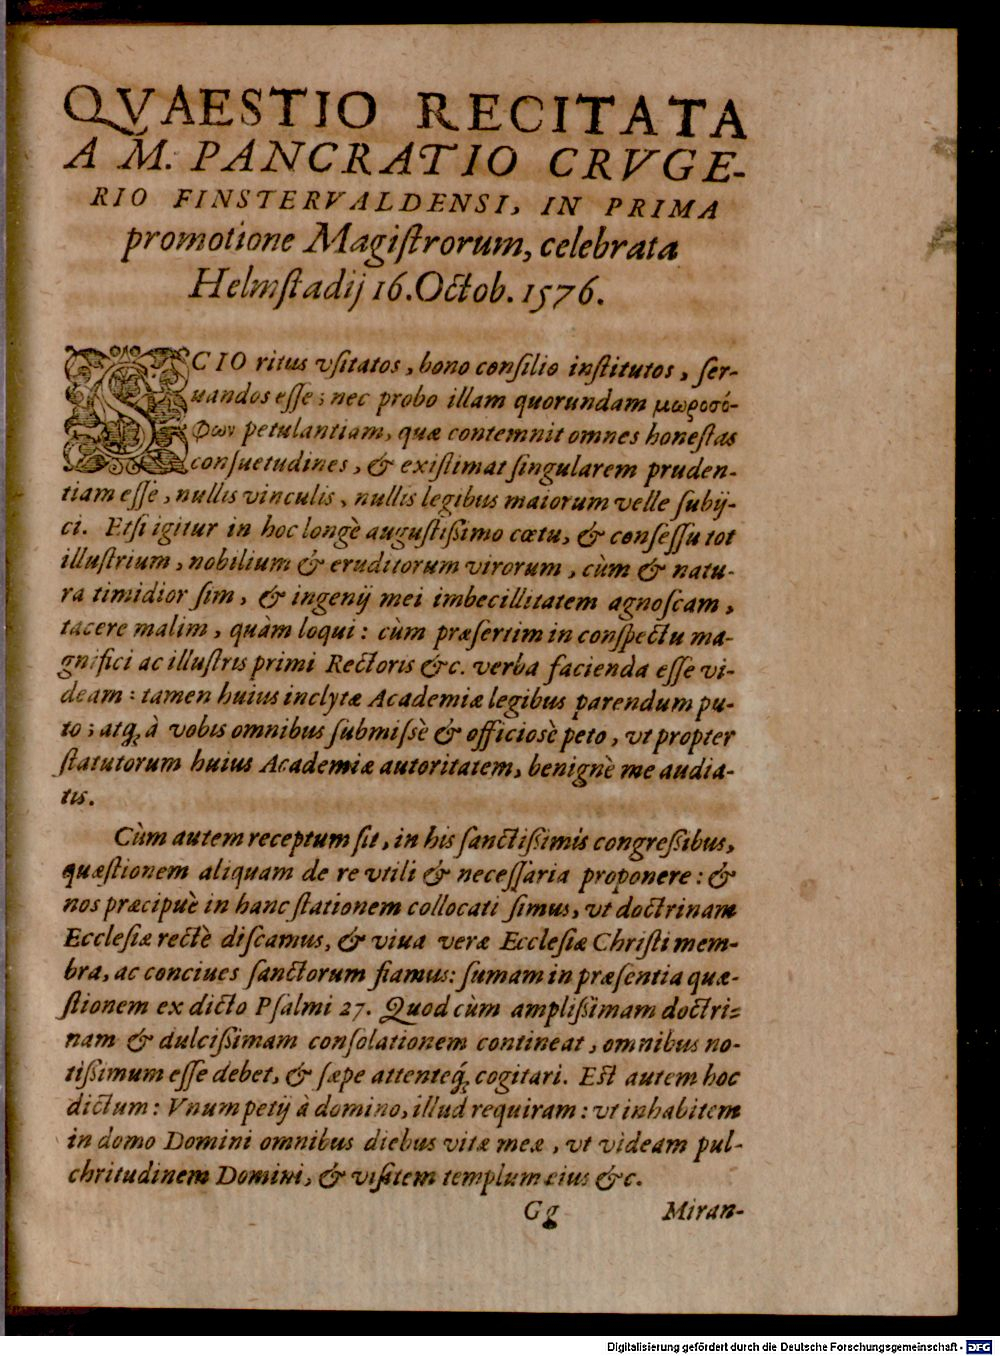 QVAESTIO RECITATA
A M. PANCRATIO CRVGE-
RIO FINSTERVALDENSI, IN PRIMA
promotione Magiſtrorum, celebrata
Helmſtadij 16. Octob. 1576.
SCIO ritus vſitatos, bono conſilio inſtitutos, ſer-
uandos eſſe; nec probo illam quorundam μωροσό-
φων petulantiam, quæ contemnit omnes honeſtas
conſuetudines, & exiſtimat ſingularem pruden-
tiam eſſe, nullis vinculis, nullis legibus maiorum velle ſubij-
ci. Etſi igitur in hoc longè auguſtißimo cœtu, & conſeſſu tot
illuſtrium, nobilium & eruditorum virorum, cùm & natu-
ra timidior ſim, & ingenij mei imbecillitatem agnoſcam,
tacere malim, quàm loqui: cùm præſertim in conſpectu ma-
gnifici ac illuſtris primi Rectoris &c. verba facienda eſſe vi-
deam: tamen huius inclytæ Academiæ legibus parendum pu-
to; atq; à vobis omnibus ſubmiſsè & officiosè peto, vt propter
ſtatutorum huius Academiæ autoritatem, benignè me audia-
tis.
Cùm autem receptum ſit, in his ſanctißimis congreßibus,
quæſtionem aliquam de re vtili & neceſſaria proponere: &
nos præcipuè in hanc ſtationem collocati ſimus, vt doctrinam
Eccleſiæ rectè diſcamus, & viua veræ Eccleſiæ Chriſti mem-
bra, ac conciues ſanctorum fiamus: ſumam in præſentia quæ-
ſtionem ex dicto Pſalmi 27. Quod cùm amplißimam doctri-
nam & dulcißimam conſolationem contineat, omnibus no-
tißimum eſſe debet, & ſæpe attenteq; cogitari. Eſt autem hoc
dictum: Vnum petij à domino, illud requiram: vt inhabitem
in domo Domini omnibus diebus vitæ meæ, vt videam pul-
chritudinem Domini, & viſitem templum eius &c.
Gg Miran-
Digitalisierung gefördert durch die Deutsche Forschungsgemeinschaft - DFG